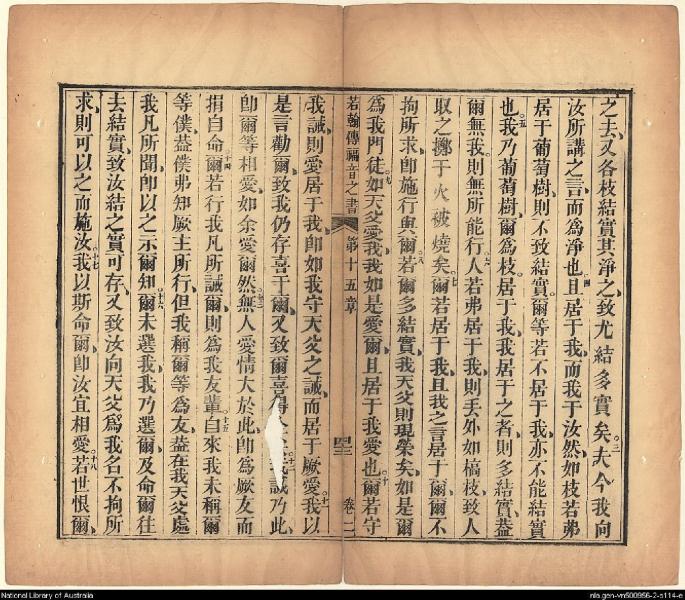 之去、又各枝結實其淨之、致尤結多實矣。三夫今我向
汝所講之言、而爲淨也。四且居于我、而我于汝、然如枝若弗
居于葡萄樹、則不致結實。爾等若不居于我、亦不能結實
也。五我乃葡萄樹、爾爲枝。居于我、我居于之者、則多結實、蓋
爾無我、則無所能行。六人若弗居于我、則丟外如槁枝、致人
取之擲于火被燒矣。七爾若居于我、且我之言居于爾、爾不
拘所求、即施行與爾。八若爾多結實、我天父則現榮矣、如是爾
爲我門徒。九如天父愛我、我如是愛爾、且居于我愛也。十爾若守
若翰傳福音之書 第十五章 卷二
我誡、則愛居于我、即如我守天父之誡、而居于厥愛。十一我以
是言勸爾、致我仍存喜于爾、又致爾喜得 十二我誡乃此、
即爾等相愛、如余愛爾然。十三無人愛情大於此、即爲厥友而
捐自命。十四爾若行我凡所誡爾、則爲我友輩。十五自來我未稱爾
等僕、蓋僕弗知厥主所行、但我稱爾等爲友、蓋在我天父處
我凡所聞、即以之示爾知。十六爾未選我、我乃選爾、及命爾往
去結實、致汝結之實可存、又致汝向天父爲我名不拘所
求、則可以之而施汝。十七我以斯命爾、即汝宜相愛。十八若世恨爾、
National Library of Australia
nla.gen-vn500956-2-s114-e